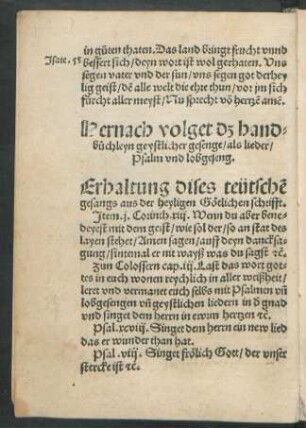 in gůten thaten. Das land bringt frucht vnnd
Isaie. 55 bessert sich/ deyn wort ist wol gerhaten. Vns
segen vater vnd der sun/ vns segen got der hey
lig geist/ dē alle welt die ehre thun/ vor jm sich
fürcht aller meyst/ Nu sprecht vō hertzē amē.
Hernach volget dz hand-
bůchleyn geystlicher gesenge/ als lieder/
Psalm vnd lobgeseng.
Erhaltung dises teütschē
gesangs aus der heyligen Götlichen schrifft.
Item .j. Corinth. xiiij. Wenn du aber bene-
deyest mit dem geist/ wie sol der/ so an stat des
layen stehet/ Amen sagen/ auff deyn dancksa-
gung/ sintemal er nit wayß was du sagst ⁊c̄.
Zun Colossern cap. iij. Last das wort got
tes in euch wonen reychlich in aller weißheit/
leret vnd vermanet euch selbs mit Psalmen vñ
lobgesengen vñ geystlichen liedern in d̓ gnad
vnd singet dem herrn in ewrn hertzen ⁊c̄.
Psal. xcviij. Singet dem herrn ein new lied
das er wunder than hat.
Psal. viij. Singet frölich Gott/ der vnser
stercke ist ⁊c̄.